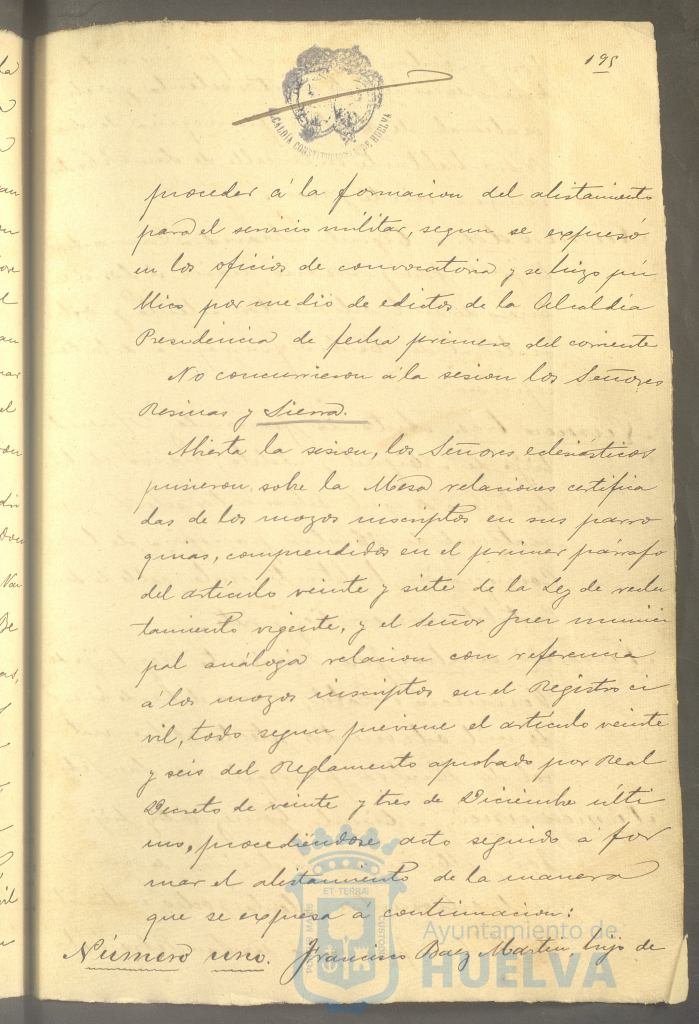 195
ALCALDIA CONSTITUCIONAL DE HUELVA
proceder á la formacion del alistamiento
para el servicio militar, segun se expresó
en los oficios de convocatoria y se hizo pú
blico por medio de edictos de la Alcaldía
Presidencia de fecha primero del corriente
No concurrieron á la sesion los Señores
Resinas y Sierra.
Abierta la sesion, los Señores eclesiásticos
pusieron sobre la Mesa relaciones certifica
das de los mozos inscriptos en sus parro
quias, comprendidos en el primer párrafo
del artículo veinte y siete de la Ley de reclu
tamiento vigente, y el Señor Juez munici
pal análoga relacion con referencia
á los mozos inscriptos en el Registro ci
vil, todo segun previene el artículo veinte
y seis del Reglamento aprobado por Real
Decreto de veinte y tres de Diciembre últi
mo, procediendose acto seguido á for
mar el alistamiento de la manera
que se expresa á continuacion:
Número uno. Francisco Baez Martin, hijo de
Ayuntamiento de
HUELVA